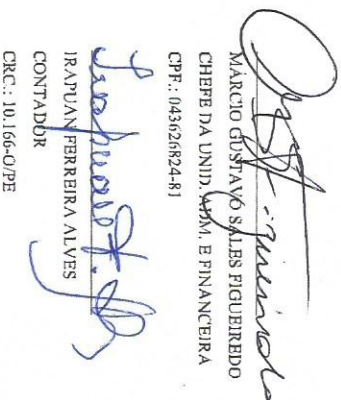 MÁRCIO GUSTAVO SALES FIGUEIREDO
CHEFE DA UNID. ADM. E FINANCEIRA
CPF.: 043626824-81
IRAPUAN FERREIRA ALVES
CONTADOR
CRC.: 10.166-O/PE